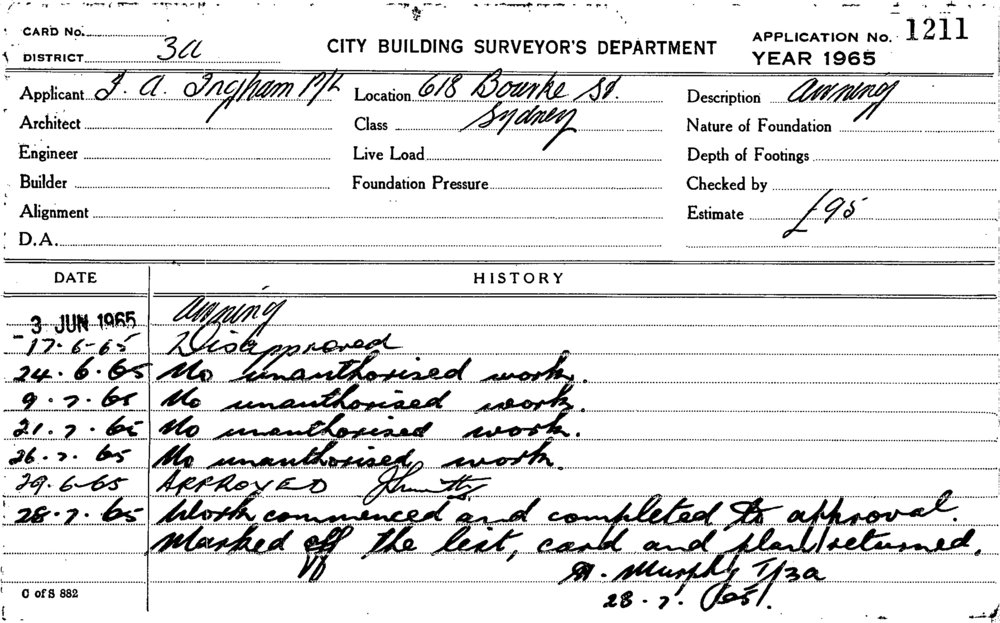 CARD No.
DISTRICT 3a
CITY BUILDING SURVEYOR'S DEPARTMENT
APPLICATION No. 1211
YEAR 1965
Applicant J. A. Ingham P/L
Location 618 Bourke St.
Sydney
Description Awning
Architect
Class
Nature of Foundation
Engineer
Live Load
Depth of Footings
Builder
Foundation Pressure
Checked by
Alignment
Estimate £95
D.A.
DATE HISTORY
- 3 JUN 1965 Awning
17.6-65 Disapproved
24.6.65 No unauthorised work.
9.7.65 No unauthorised work.
21.7.65 No unauthorised work.
26.7.65 No unauthorised work.
29.6-65 APPROVED
28.7.65 Work commenced and completed to approval.
Marked off the list, card and plan returned.
Murphy T/3a
28.7.65.
C of S 882